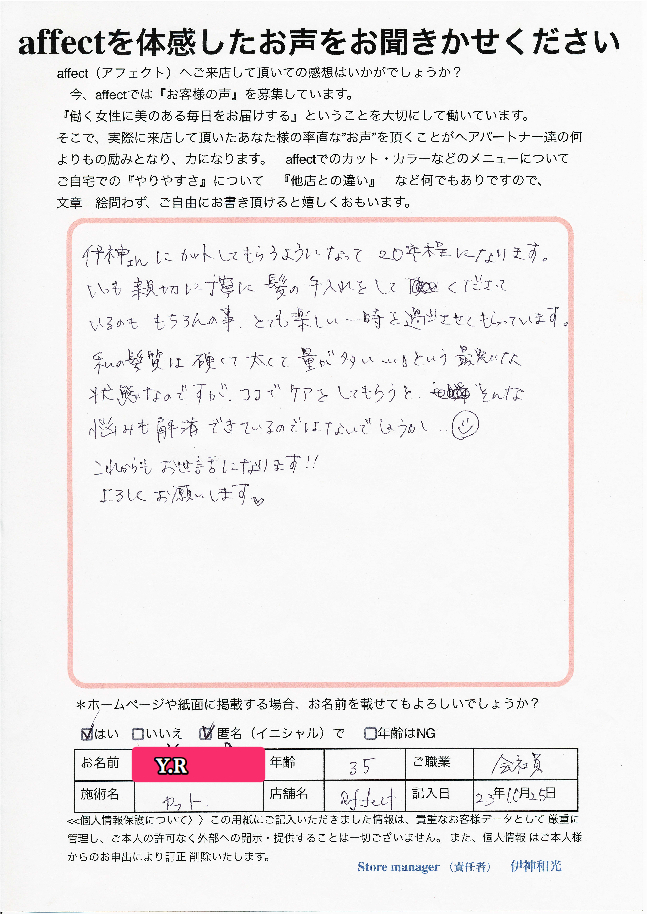 affectを体感したお声をお聞きかせください
affect（アフェクト）へご来店して頂いての感想はいかがでしょうか？
今、affectでは『お客様の声』を募集しています。
『働く女性に美のある毎日をお届けする』ということを大切にして働いています。
そこで、実際に来店して頂いたあなた様の率直な"お声"を頂くことがヘアパートナー達の何
よりもの励みとなり、力になります。 affectでのカット・カラーなどのメニューについて
ご自宅での『やりやすさ』について 『他店との違い』 など何でもありですので、
文章 絵問わず、ご自由にお書き頂けると嬉しくおもいます。
伊神さんにカットしてもらうようになって20年程になります。
いつも親切に丁寧に髪の手入れをして くださって
いるのも もちろんの事、とても楽しい一時を過ごさせてもらっています。
私の髪質は硬くて太くて量が多い…。という最悪な
状態なのですが、ココでケアをしてもらうと、そんな
悩みも解消できているのではないでしょうか…
これからもお世話になります!!
よろしくお願いします♡
＊ホームページや紙面に掲載する場合、お名前を載せてもよろしいでしょうか？
☑はい □いいえ ☑匿名（イニシャル）で □年齢はNG
お名前 Y.R 年齢 35 ご職業 会社員
施術名 カット 店舗名 affect 記入日 23年10月25日
<<個人情報保護について〉〉この用紙にご記入いただきました情報は、貴重なお客様データとして厳重に
管理し、ご本人の許可なく外部への開示・提供することは一切ございません。また、個人情報はご本人様
からのお申出により訂正削除いたします。
Store manager （責任者） 伊神和光